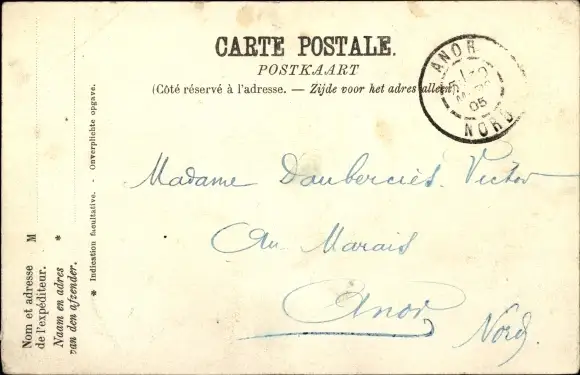 CARTE POSTALE.
POSTKAART
(Côté réservé à l'adresse. — Zijde voor het adres alleen)
ANOR
05
NORD
Madame Daubercies Victor
Au Marais
Anor
Nord
Nom et adresse de l'expéditeur. M
Naam en adres van den afzender. *
* Indication facultative. - Onverplichte opgave.